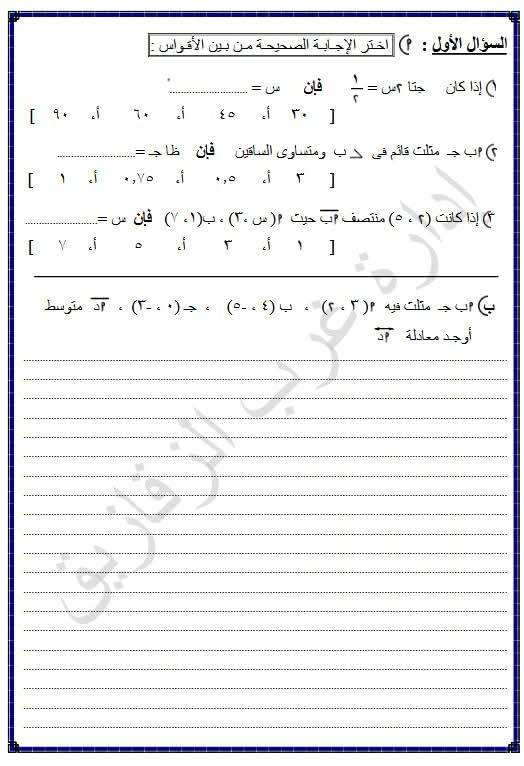 السؤال الأول : ‌P) اختر الإجابة الصحيحة من بين الأقواس :
١) إذا كان جتا ٢س = ١/٢ فإن س = ....................... °
[ ٣٠ أ، ٤٥ أ، ٦٠ أ، ٩٠ ]
٢) P ب جـ مثلث قائم فى ∠ ب ومتساوى الساقين فإن ظا جـ = .......................
[ ٣ أ، ٠,٥ أ، ٠,٧٥ أ، ١ ]
٣) إذا كانت (٢ ، ٥) منتصف P ب حيث P( س ،٣) ، ب(١، ٧) فإن س = .......................
[ ١ أ، ٣ أ، ٥ أ، ٧ ]
ب) P ب جـ مثلث فيه P( ٣ ، ٢) ، ب (٤ ، -٥) ، جـ (٠ ، -٣) ، P د متوسط
أوجد معادلة P د
ادارة غرب الزقازيق